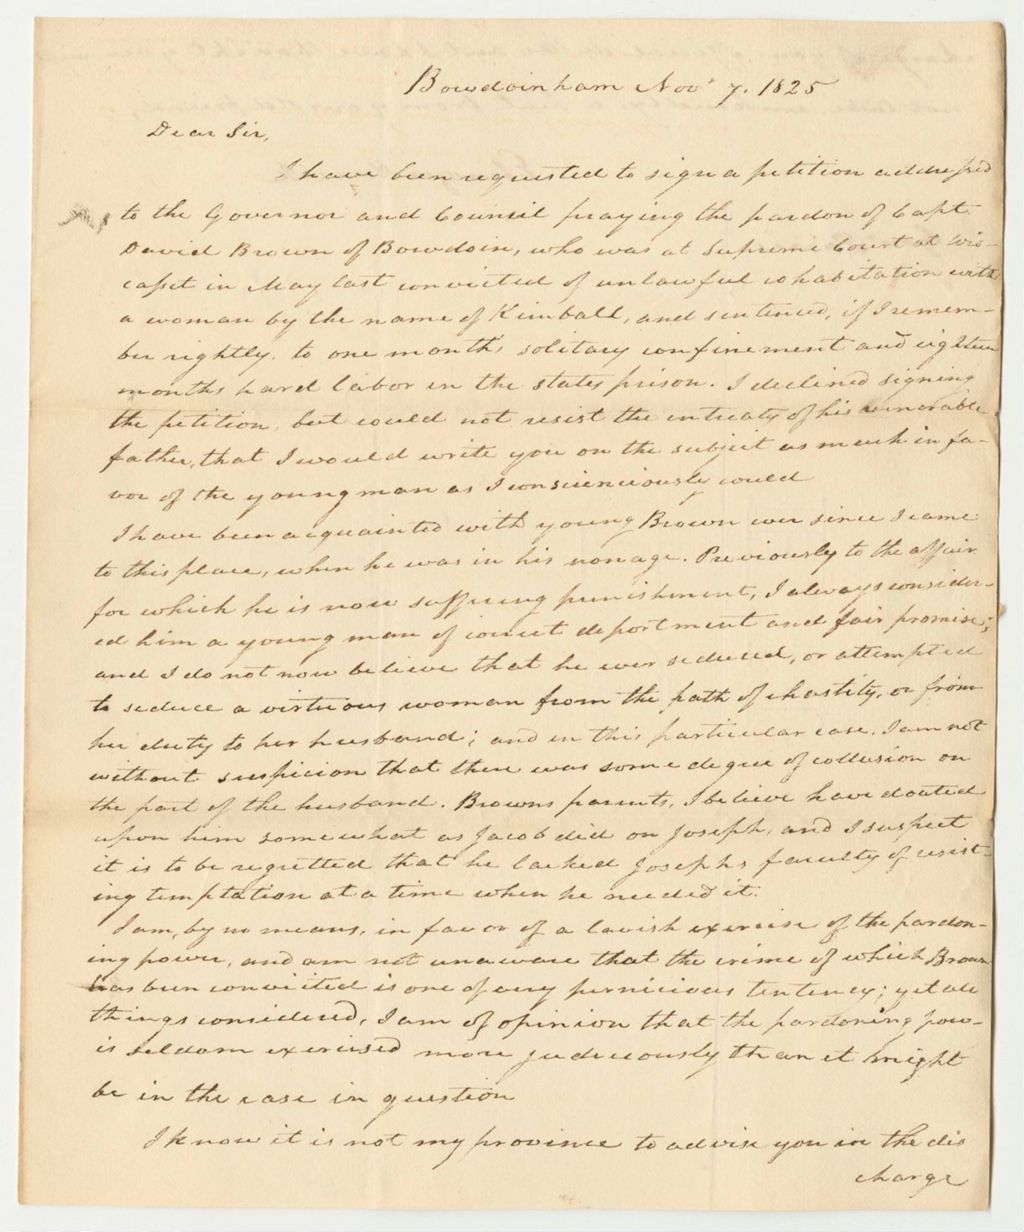 Bowdoinham Nov' 7. 1825
Dear Sir,
I have been requested to sign a petition addressed
to the Governor and Council praying the pardon of Capt
David Brown of Bowdoin, who was at Supreme Court at Wis-
casset in May last convicted of unlawful cohabitation with
a woman by the name of Kimball, and sentenced, if I remem-
ber rightly, to one month's solitary confinement and eighteen
months hard labor in the states prison. I declined signing
the petition, but could not resist the intreaty of his venerable
father, that I would write you on the subject as much in fa-
vor of the young man as I conscienciously could
I have been acquainted with young Brown ever since I came
to this place, when he was in his nonage. Previously to the affair
for which he is now suffering punishment, I always consider-
ed him a young man of correct deportment and fair promise;
and I do not now believe that he ever seduced, or attempted
to seduce a virtuous woman from the path of chastity, or from
her duty to her husband; and in this particular case, I am not
without suspicion that there was some degree of collusion on
the part of the husband. Browns parents, I believe have doated
upon him somewhat as Jacob did on Joseph, and I suspect
it is to be regretted that he lacked Josephs faculty of resist-
ing temptation at a time when he needed it.
I am, by no means, in favor of a lavish exercise of the pardon-
ing power, and am not unaware that the crime of which Brown
has been convicted is one of very pernicious tentency; yet all
things considered, I am of opinion that the pardoning pow-
is seldom exercised more judiciously than it might
be in the case in question
I know it is not my province to advise you in the dis
charge